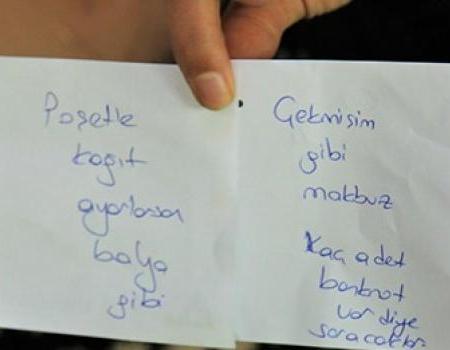 Poşetle
kağıt
ayarlasan
balya
gibi
Gekmişim
gibi
makbuz
Kaç adet
banknot
var diye
soracaklar